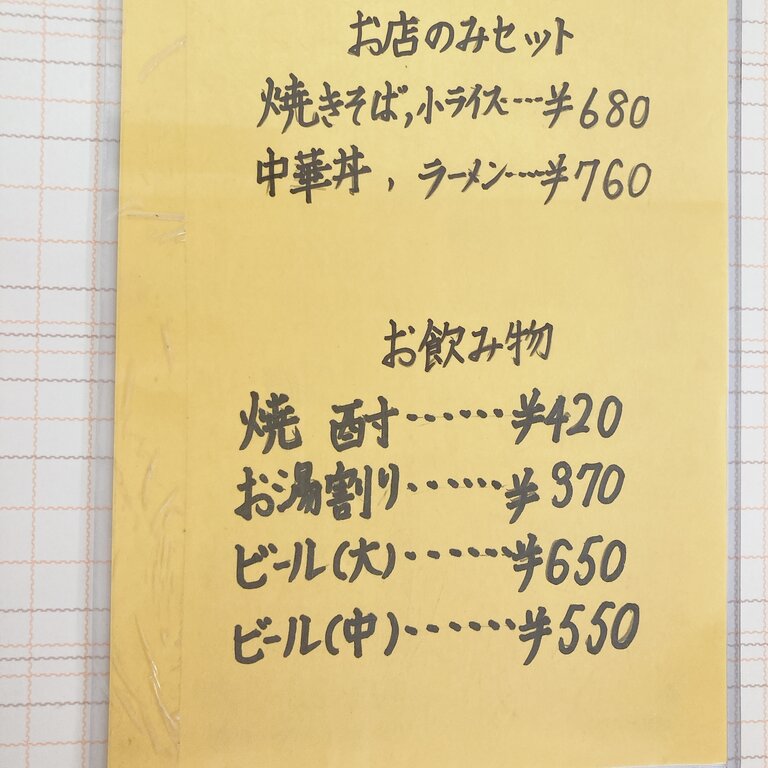 お店のみセット
焼きそば,小ライス…¥680
中華丼,ラーメン…¥760
お飲み物
焼酎……¥420
お湯割り……¥370
ビール(大)……¥650
ビール(中)……¥550